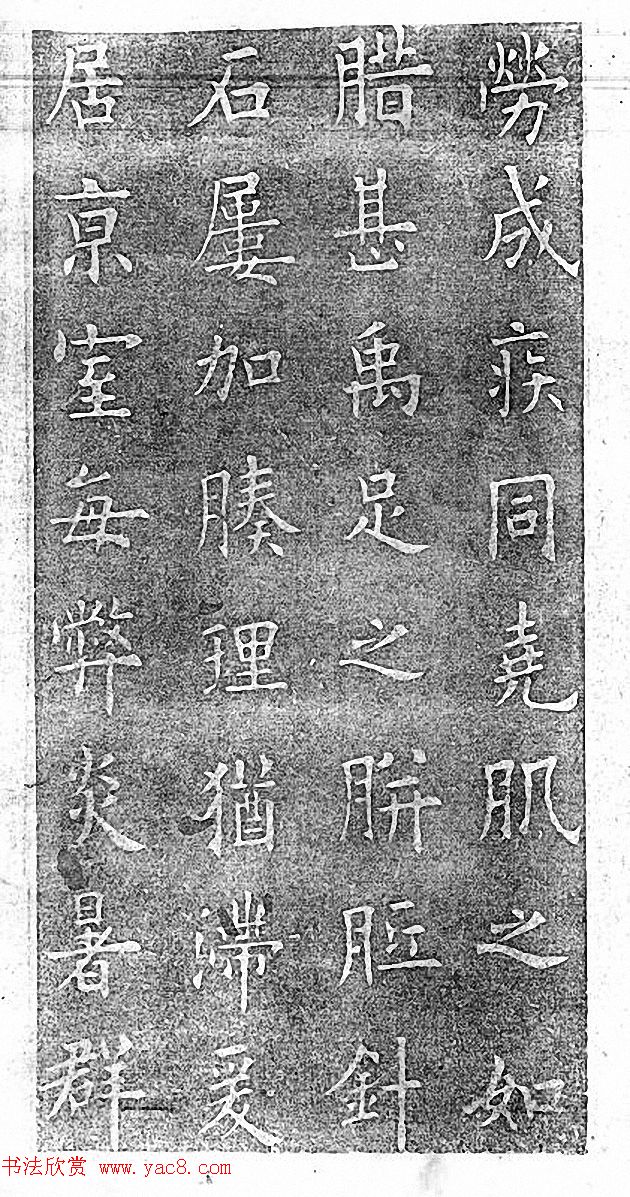 勞成疾同堯肌之如
腊甚禹足之腁胝針
石屢加腠理猶滯爰
居京室每弊炎暑群
书法欣赏 www.yac8.com